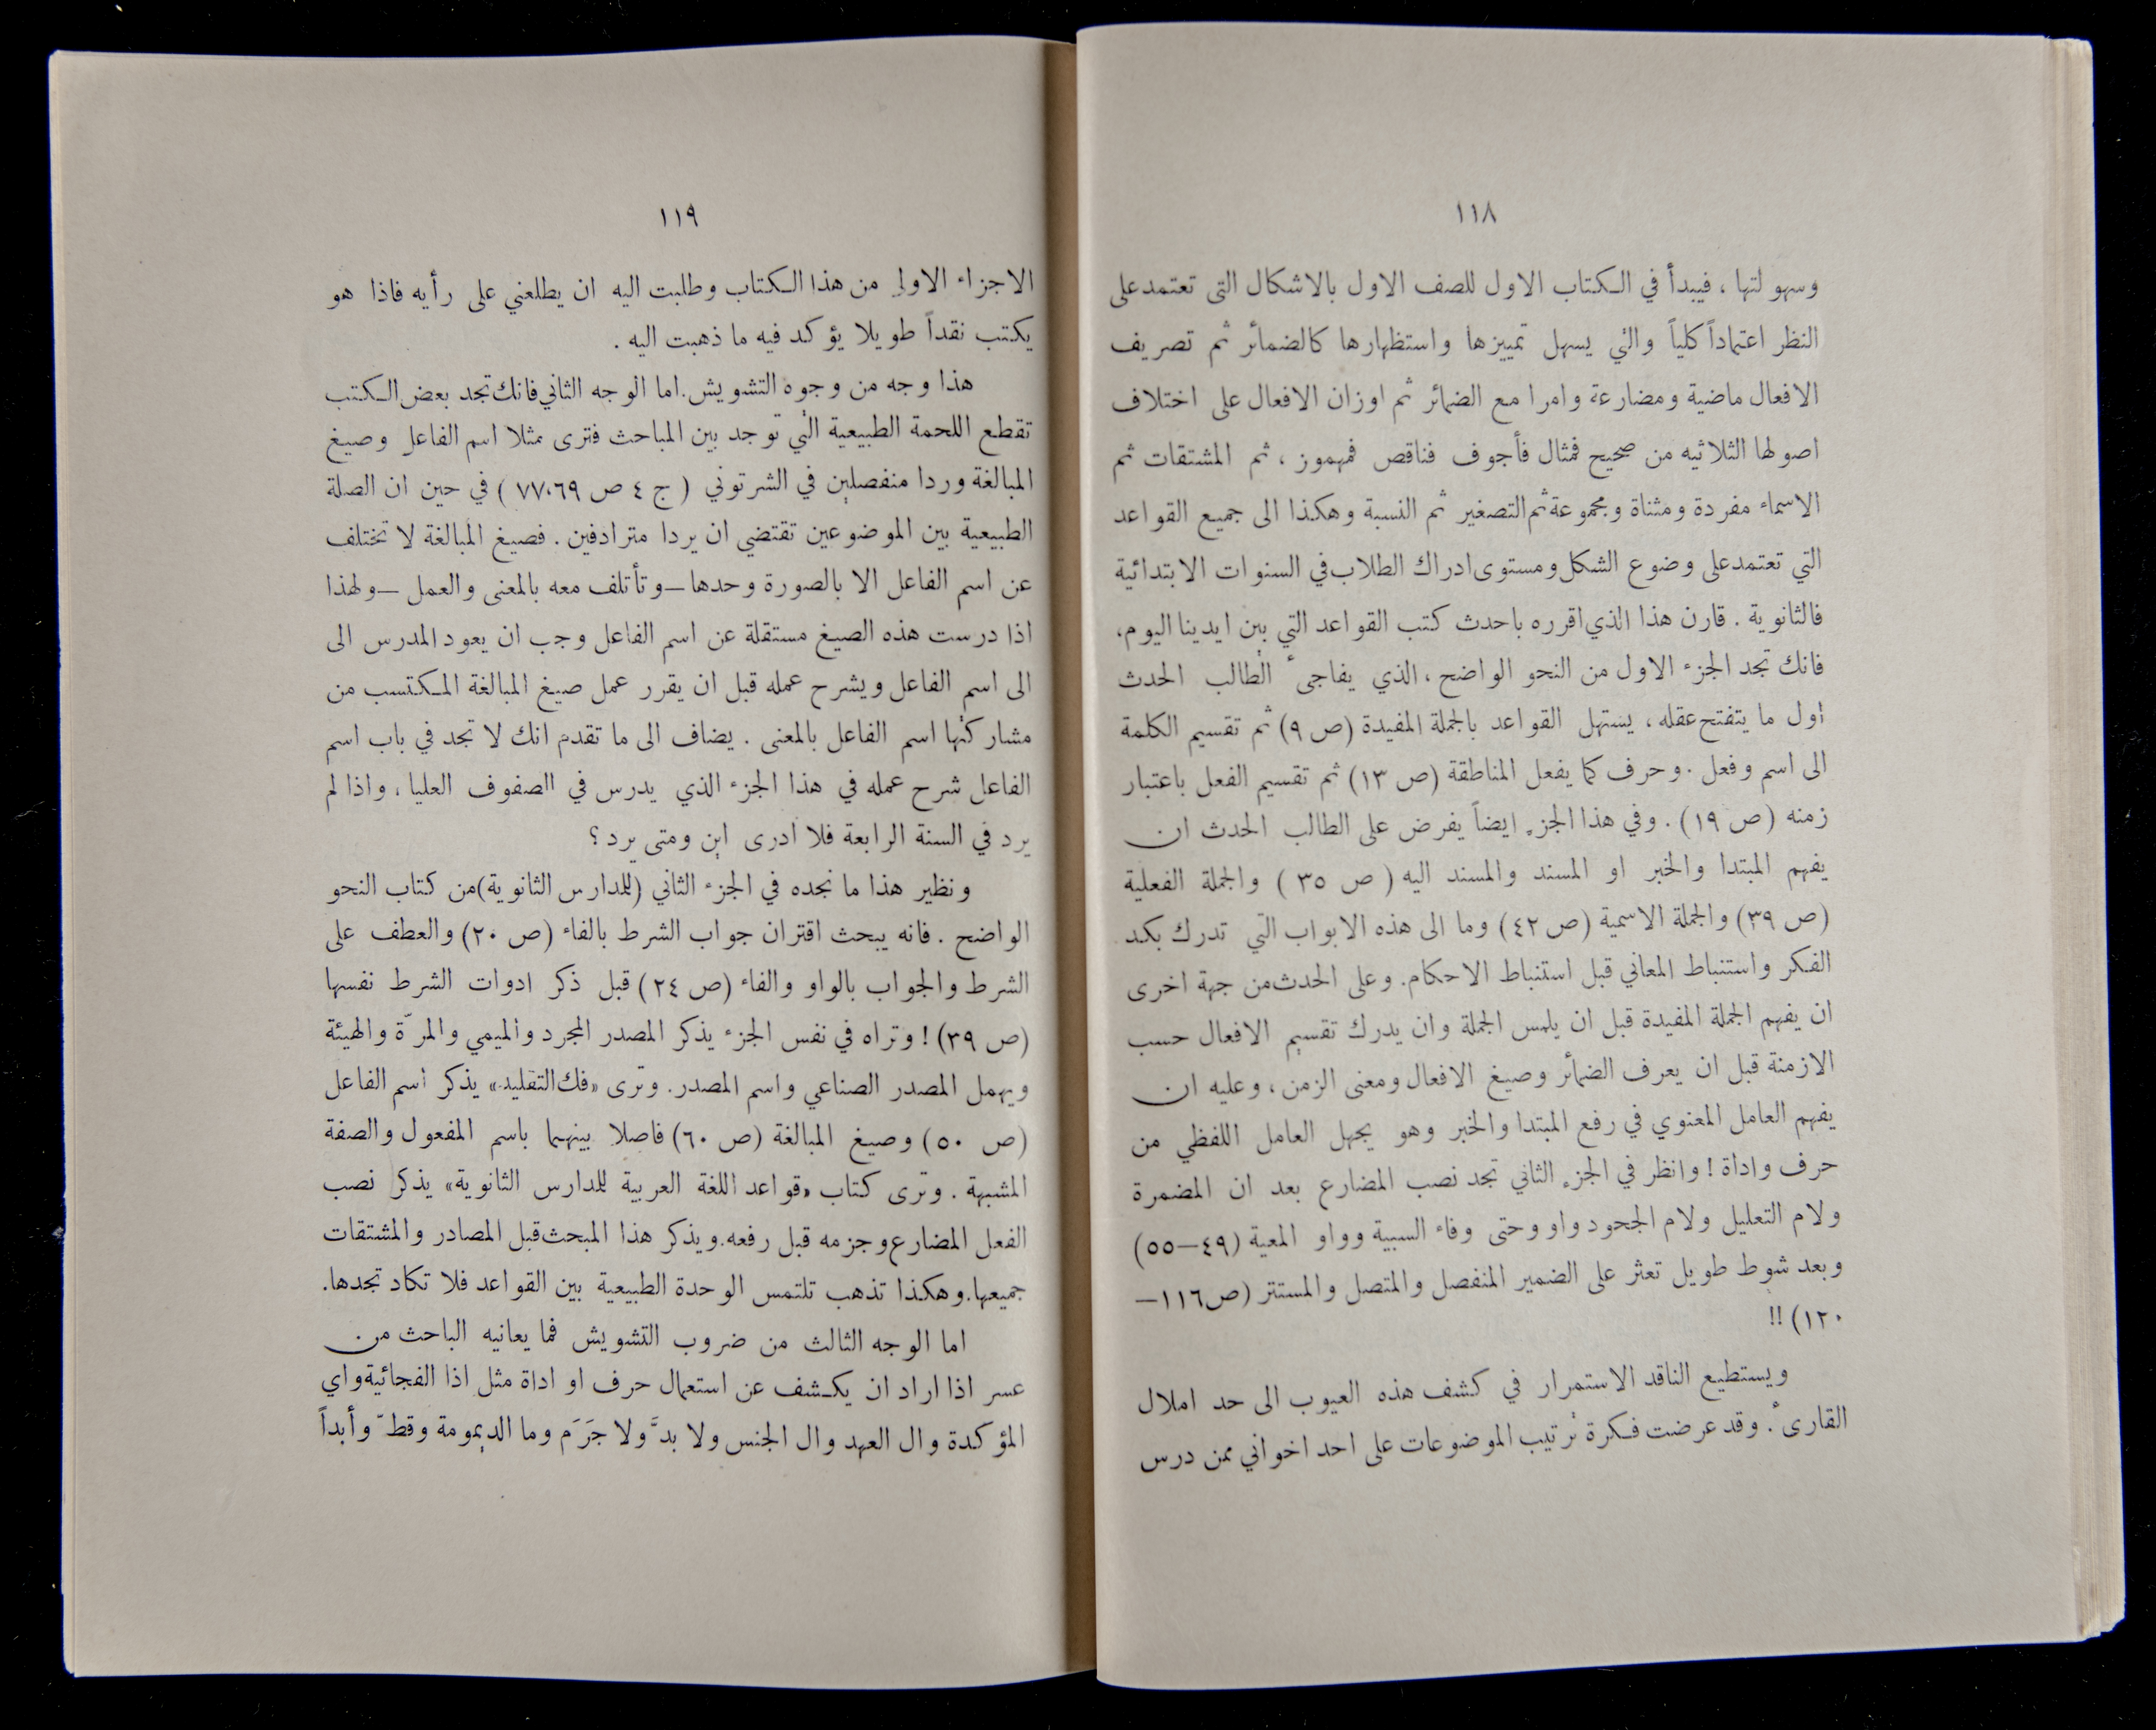 ١١٨
وسهولتها ، فيبدأ في الكتاب الاول للصف الاول بالاشكال التى تعتمد على
النظر اعتماداً كلياً والتي يسهل تمييزها واستظهارها كالضمائر ثم تصريف
الافعال ماضية ومضارعة وامرا مع الضمائر ثم اوزان الافعال على اختلاف
اصولها الثلاثيه من صحيح فمثال فأجوف فناقص فمهموز ، ثم المشتقات ثم
الاسماء مفردة ومثناة ومجموعة ثم التصغير ثم النسبة وهكذا الى جميع القواعد
التي تعتمد على وضوع الشكل ومستوى ادراك الطلاب في السنوات الابتدائية
فالثانوية . قارن هذا الذي اقرره باحدث كتب القواعد التي بين ايدينا اليوم،
فانك تجد الجزء الاول من النحو الواضح ، الذي يفاجىء الطالب الحدث
اول ما يتفتح عقله ، يستهل القواعد بالجملة المفيدة (ص ٩) ثم تقسيم الكلمة
الى اسم وفعل . وحرف كما يفعل المناطقة (ص ١٣) ثم تقسيم الفعل باعتبار
زمنه (ص ١٩) . وفي هذا الجزء ايضاً يفرض على الطالب الحدث ان
يفهم المبتدا والخبر او المسند والمسند اليه ( ص ٣٥ ) والجملة الفعلية
(ص ٣٩) والجملة الاسمية (ص ٤٢) وما الى هذه الابواب التي تدرك بكد
الفكر واستنباط المعاني قبل استنباط الاحكام. وعلى الحدث من جهة اخرى
ان يفهم الجملة المفيدة قبل ان يلمس الجملة وان يدرك تقسيم الافعال حسب
الازمنة قبل ان يعرف الضمائر وصيغ الافعال ومعنى الزمن ، وعليه ان
يفهم العامل المعنوي في رفع المبتدا والخبر وهو يجهل العامل اللفظي من
حرف واداة ! وانظر في الجزء الثاني تجد نصب المضارع بعد ان المضمرة
ولام التعليل ولام الجحود واو وحتى وفاء السببية وواو المعية (٤٩—٥٥)
وبعد شوط طويل تعثر على الضمير المنفصل والمتصل والمستتر (ص١١٦—
١٢٠) !!
ويستطيع الناقد الاستمرار في كشف هذه العيوب الى حد املال
القارىء . وقد عرضت فكرة ترتيب الموضوعات على احد اخواني ممن درس
١١٩
الاجزاء الاولى من هذا الكتاب وطلبت اليه ان يطلعني على رأيه فاذا هو
يكتب نقداً طويلا يؤكد فيه ما ذهبت اليه .
هذا وجه من وجوه التشويش. اما الوجه الثاني فانك تجد بعض الكتب
تقطع اللحمة الطبيعية التي توجد بين المباحث فترى مثلا اسم الفاعل وصيغ
المبالغة وردا منفصلين في الشرتوني ( ج ٤ ص ٦٩،٧٧ ) في حين ان الصلة
الطبيعية بين الموضوعين تقتضي ان يردا مترادفين . فصيغ المبالغة لا تختلف
عن اسم الفاعل الا بالصورة وحدها — وتأتلف معه بالمعنى والعمل — ولهذا
اذا درست هذه الصيغ مستقلة عن اسم الفاعل وجب ان يعود المدرس الى
الى اسم الفاعل ويشرح عمله قبل ان يقرر عمل صيغ المبالغة المكتسب من
مشاركتها اسم الفاعل بالمعنى . يضاف الى ما تقدم انك لا تجد في باب اسم
الفاعل شرح عمله في هذا الجزء الذي يدرس في الصفوف العليا ، واذا لم
يرد في السنة الرابعة فلا ادرى اين ومتى يرد ؟
ونظير هذا ما نجده في الجزء الثاني (للمدارس الثانوية) من كتاب النحو
الواضح . فانه يبحث اقتران جواب الشرط بالفاء (ص ٢٠) والعطف على
الشرط والجواب بالواو والفاء (ص ٢٤) قبل ذكر ادوات الشرط نفسها
(ص ٣٩) ! وتراه في نفس الجزء يذكر المصدر المجرد والميمي والمرّة والهيئة
ويهمل المصدر الصناعي واسم المصدر. وترى «فك التقليد» يذكر اسم الفاعل
(ص ٥٠) وصيغ المبالغة (ص ٦٠) فاصلا بينهما باسم المفعول والصفة
المشبهة . وترى كتاب «قواعد اللغة العربية للمدارس الثانوية» يذكر نصب
الفعل المضارع وجزمه قبل رفعه. ويذكر هذا المبحث قبل المصادر والمشتقات
جميعها. وهكذا تذهب تلتمس الوحدة الطبيعية بين القواعد فلا تكاد تجدها.
اما الوجه الثالث من ضروب التشويش فما يعانيه الباحث من
عسر اذا اراد ان يكشف عن استعمال حرف او اداة مثل اذا الفجائية واي
المؤكدة وال العهد وال الجنس ولا بدَّ ولا جَرَم وما الديمومة وقطّ وأبداً